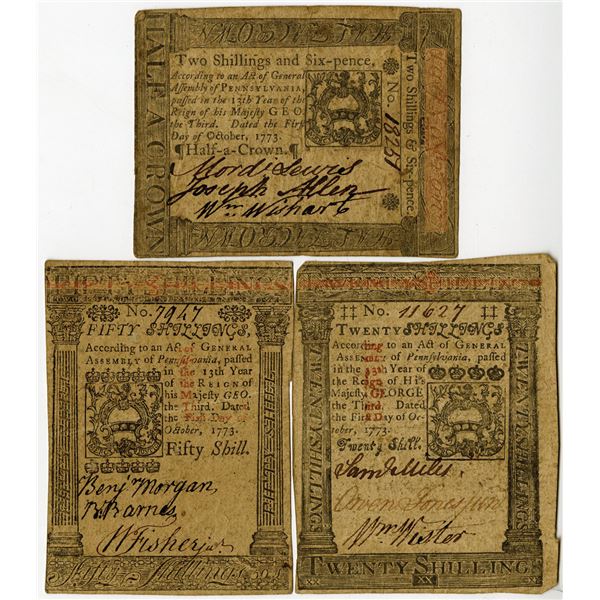 HALF A CROWN
Two Shillings and Six-pence,
According to an Act of General
Assembly of PENNSYLVANIA,
passed in the 13th Year of the
Reign of his Majesty GEO.
the Third. Dated the First
Day of October, 1773.
¶Half-a-Crown.¶
No. 18257
Two Shillings & Six-pence.
Mordi Lewis
Joseph Allen
Wm Wishart
FIFTY SHILLINGS
No. 7947
FIFTY SHILLINGS,
According to an Act of GENERAL
ASSEMBLY of Pennsylvania, passed
in the 13th Year
of the REIGN of
his Majesty GEO.
the Third. Dated
the First Day of
October, 1773.
Fifty Shill.
Benj Morgan,
B. Barnes
W Fisher junr
Fifty Shillings
‡‡ No. 11627 ‡‡
TWENTY SHILLINGS,
According to an Act of GENERAL
ASSEMBLY of Pennsylvania, passed in
the 13th Year of
the Reign of His
Majesty GEORGE
the Third. Dated
the First Day of Oc-
tober, 1773.
Twenty Shill.
TWENTY SHILLING
TWENTY SHILLINGS
Saml Miles,
Owen Jones junr
Wm Wister
TWENTY SHILLING
XX XX XX